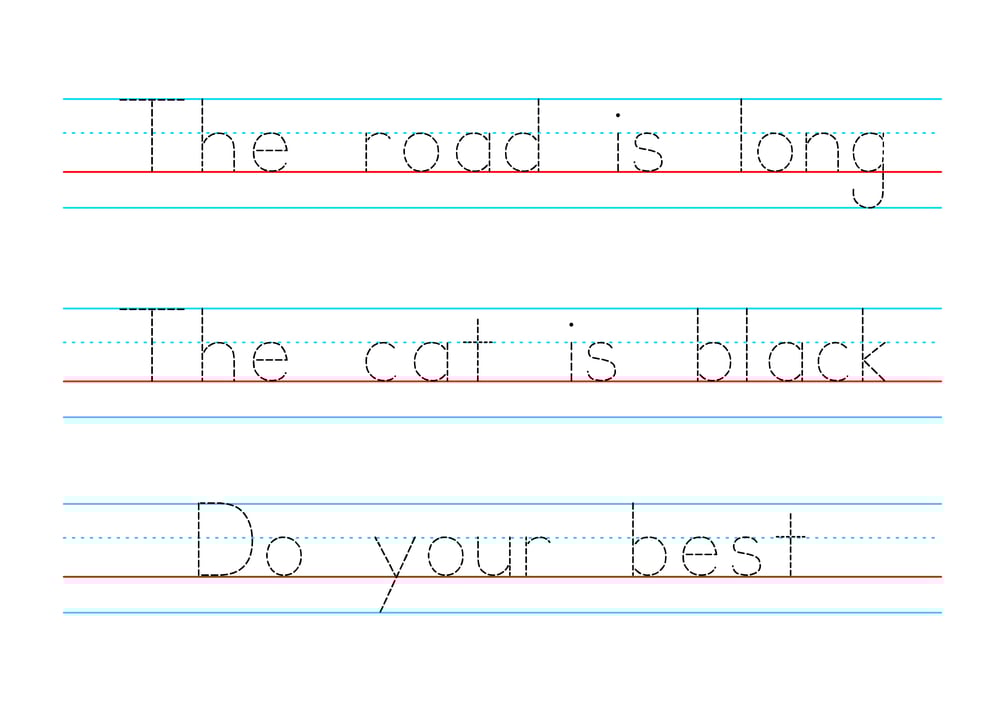 The road is long
The cat is black
Do your best